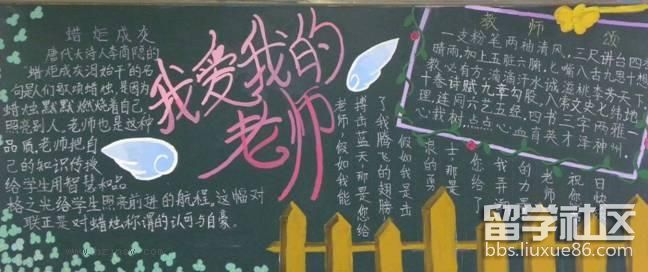 蜡炬成灰
唐代大诗人李商隐的
"蜡炬成灰泪始干"的名
句是人们歌颂蜡烛,是因为
蜡烛默默燃烧着自己,
照亮别人。老师也是这种
品质,老师把自
己的知识传授
给学生用智慧和品
格之光给学生照亮前进的航程。这幅对
联正是对蜡烛称谓的认可与自豪。
我爱我的
老师
教师颂
一支粉笔两袖清风,三尺讲台四
晴雨,加上五脏六腑,七嘴八舌九思十想
教必有方,滴滴汗水诚滋桃李芳天下,
十卷诗赋九章勾股,八索文史七纬地
理,连同六艺五经,四书三字两雅一
心,我树点点心血育英才泽神州。
老师,假如我能
搏击蓝天,那是您给
了我腾飞的翅膀
假如我是击
浪的勇
士,那是
您给了
我弄
的力
老师
祝你
日快
留学社区
bbs.liuxue86.com